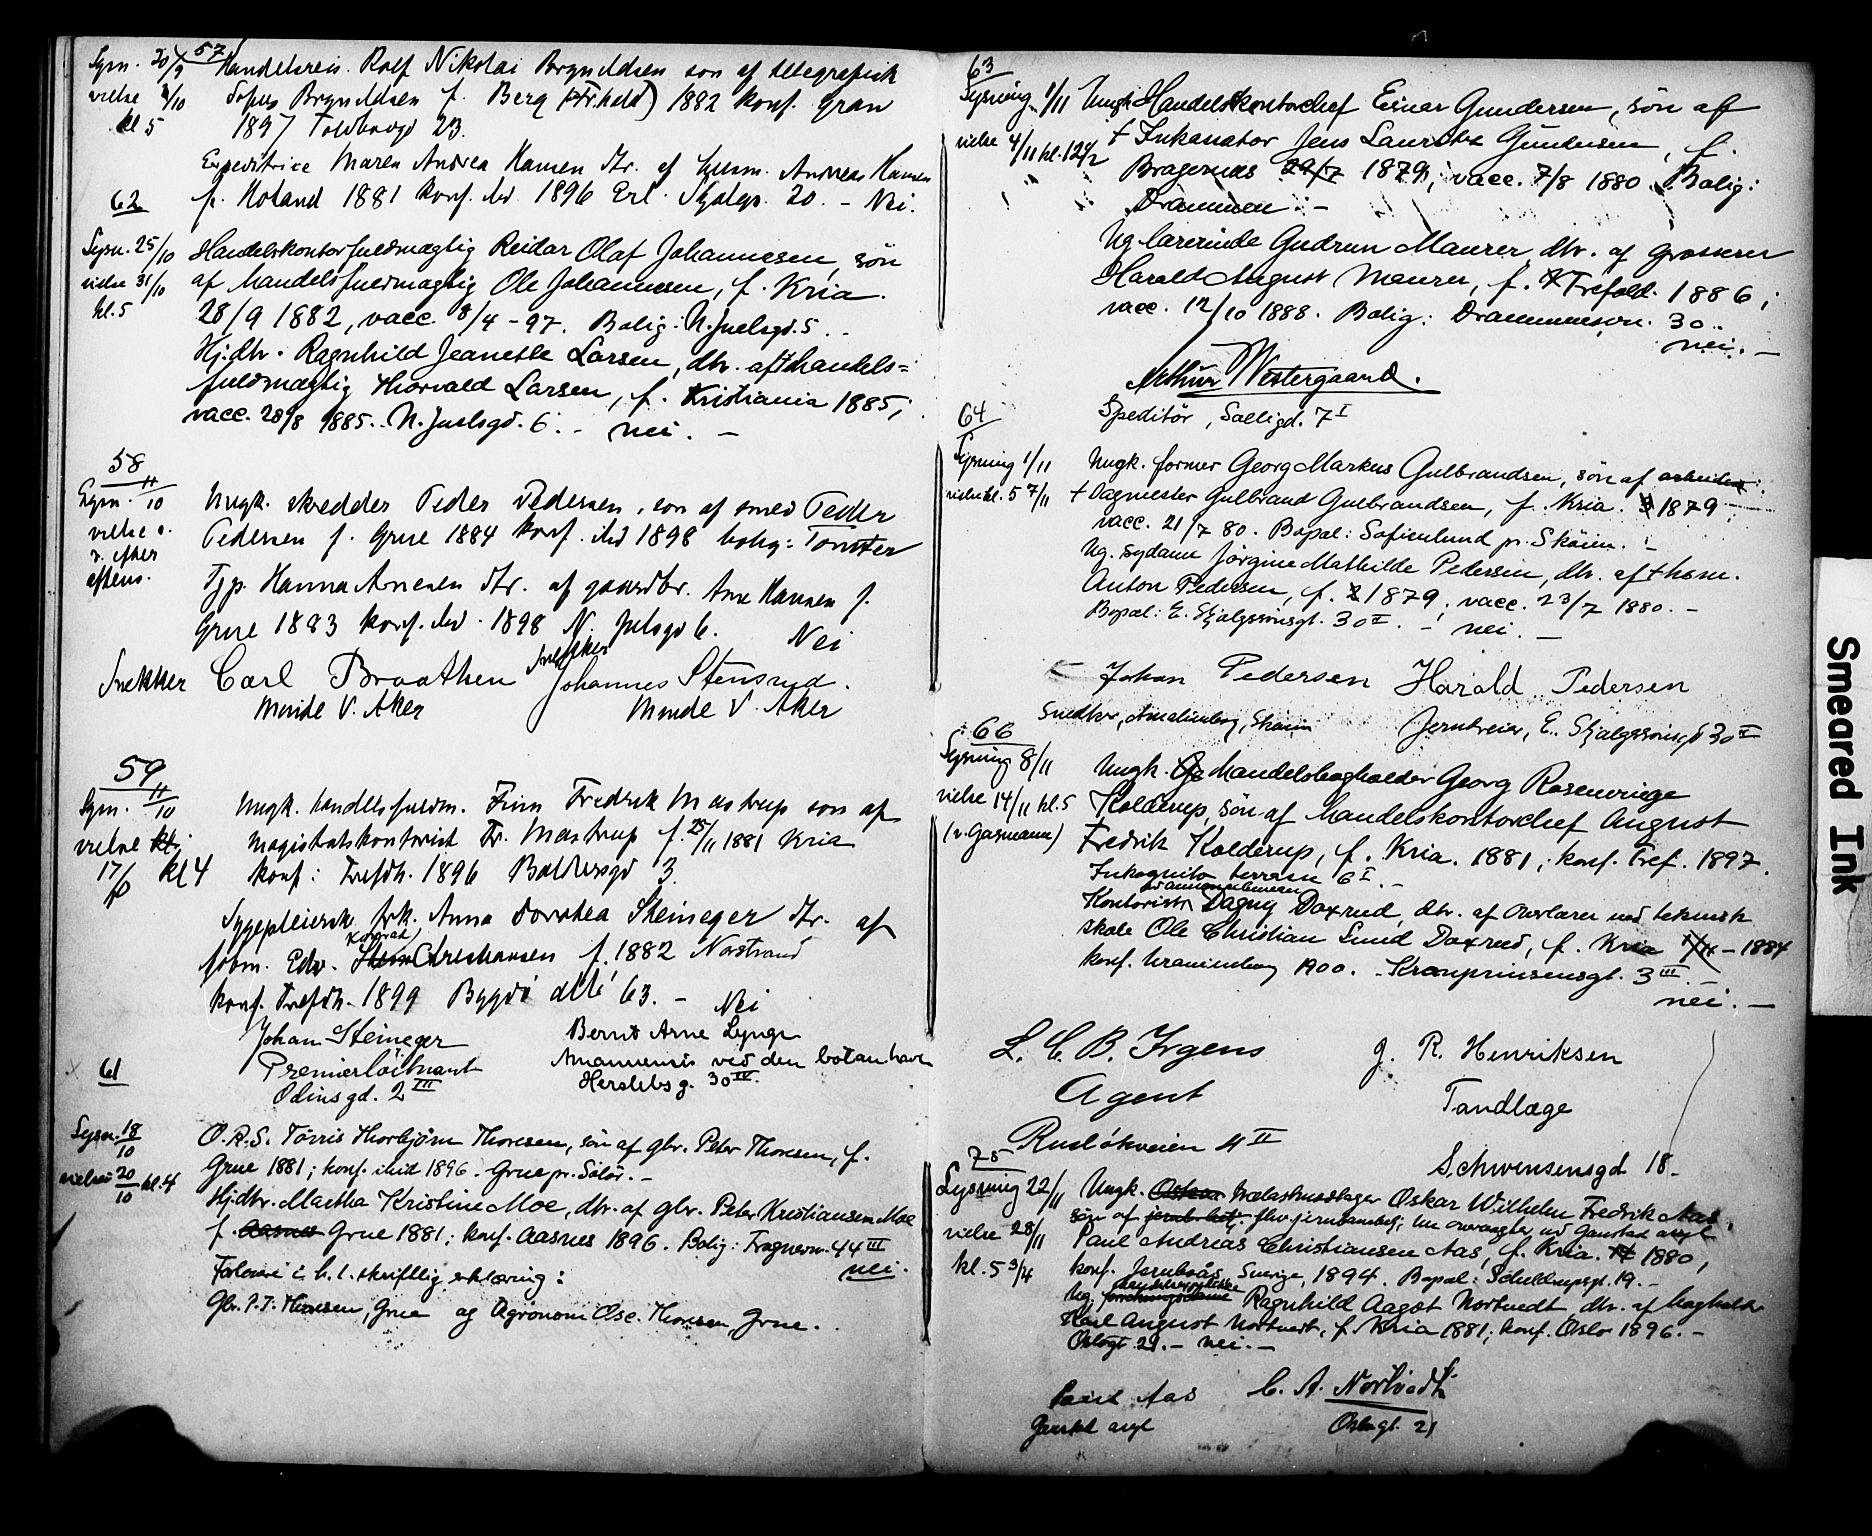 57
Lysn. 20/9 Handelsreis. Rolf Nikolai Brynildsen søn af telegrafist
vielse 2/10 Sofus Brynildsen f. Berg (Fr.hald) 1882 konf. Gran
kl 5 1897 Toldbodgd 23.
Expeditrice Maren Andrea Hansen dtr. af Andreas Hansen
f. Høland 1881 konf. ibd 1896 Erl. Skjalgs. 20. - Nei.
62
Lysn. 25/10 Handelskontorfuldmægtig Reidar Olaf Johannesen, søn
vielse 31/10 af handelsfuldmægtig Ole Johannesen, f. Kria.
kl. 5 28/9 1882, vacc. 8/4 - 97. Bolig: N. Juelsgd. 5. -
Hj.dtr. Ragnhild Jeanette Larsen, dtr. af † handels=
fuldmægtig Thorvald Larsen, f. Kristiania 1885;
vacc. 28/8 1885. N. Juelsgd. 6. - nei. -
58
Lysn. 11/10 Ungk. skredder Peder Pedersen, søn af smed Peder
vielse
Pedersen f. Grue 1884 konf. ibd 1898 bolig: Tomter
efter
aftens.
Tjp. Hanna Arnesen dtr. af gaardbr. Arne Hansen f.
Grue 1883 konf. ibd. 1898 N. Julsgd 6. Nei
Snekker Carl Braathen Snekker Johannes Stensrud.
Minde V. Aker Minde V. Aker
59
Lysn. 11/10 Ungk. handelsfuldm. Finn Fredrik Mastrup søn af
vielse kl. magistratskontorist Fr. Mastrup f. 25/11 1881 Kria
17/10 kl 4 konf: Trefdh. 1896 Baldersgd 3.
Sygepleierske frk. Anna Dorothea Steineger dtr. af
fobm. Edv. Konrad Christiansen f. 1882 Nordstrand
konf. Trefdh. 1899 Bygdø allé 63. - Nei
Johan Steineger Bernt Arne Lynge
Premierløitnant Amanuensis ved den botan have
Odinsgd. 2 III Herslebsg. 30 IV.
61
Lysn. 18/10 O.R.S. Tørris Thorbjørn Thoresen, søn af gbr. Peter Thoresen, f.
vielse 20/10 kl. 4 Grue 1881; konf. ibid 1896. Grue pr. Solør. -
Hj.dtr. Martha Kristine Moe, dtr. af gbr. Peter Kristiansen Moe
f. Aasnes Grue 1881; konf. Aasnes 1896. Bolig: Frognerv. 44 III
nei.
Forlovere i h.t. skriftlig erklæring:
Gbr. P.T. Thoresen, Grue og Agronom Osc. Thoresen, Grue. -
63
Lysning 1/11 Ungk. Handelskontorchef Einar Gundersen, søn af
vielse 4/11 kl. 12 1/2 † Inkassator Jens Lauritz Gundersen, f.
Bragernæs 29/7 1879; vacc. 7/8 1880. Bolig:
Drammen. -
Ug. lærerinde Gudrun Maurer, dtr. af grosserer
Harald August Maurer, f. Trefold. 1886;
vacc. 12/10 1888. Bolig: Drammensvn. 30.
nei. -
Arthur Westergaard.
Speditør, Solligd. 7 I
64
Lysning 1/11 Ungk. former Georg Markus Gulbrandsen, søn af arbeider
vielse kl. 5 7/11 † Dagmester Gulbrand Gulbrandsen, f. Kria. 1879;
vacc. 21/7 80. Bopæl: Sofienlund pr. Skøien. -
Ug. sydame Jørgine Mathilde Pedersen, dtr. af † hsm.
Anton Pedersen, f. 1879; vacc. 23/7 1880. -
Bopæl: E. Skjalgssønsgt. 30 II. - nei. -
Johan Pedersen Harald Pedersen
Snedker, Amalienborg, Skøien Jerndreier, E. Skjalgssønsgd 30 II
66
Lysning 8/11 Ungk. Handelsbogholder Georg Rosenvinge
vielse 14/11 kl. 5 Kolderup, søn af Handelskontorchef August
(v. Gasmann) Fredrik Kolderup, f. Kria. 1881; konf. Tref. 1897.
Inkognito terrasse 6 I. -
Kontorist Dagny Doxrud, dtr. af overlærer ved teknisk
skole Ole Christian Lund Doxrud, f. Kria - 1884
konf. Uranienborg 1900. - Kronprinsensgt. 3 III.
nei. -
L. C. B. Irgens J. R. Henriksen
Agent Tandlæge
Rusløkveien 4 II Schwensensgd 18. -
75
Lysning 22/11 Ungk. Oskar Oskar Wilhelm Fredrik Aas,
søn af
vielse 28/11 Paul Andreas Christiansen Aas, f. Kria. 1880,
kl. 5 3/4 konf. Jernboås, Sverige, 1894. Bopæl: Schultzupsgt. 19. -
Ug. Ragnhild Aagot Nortvedt, dtr. af bogholder
Karl August Nortvedt, f. Kria 1881; konf. Oslo 1896. -
Oslogt. 21. - nei. -
Paul Aas C. A. Nortvedt
Gaustad asyl Oslo gt. 21
Smeared Ink